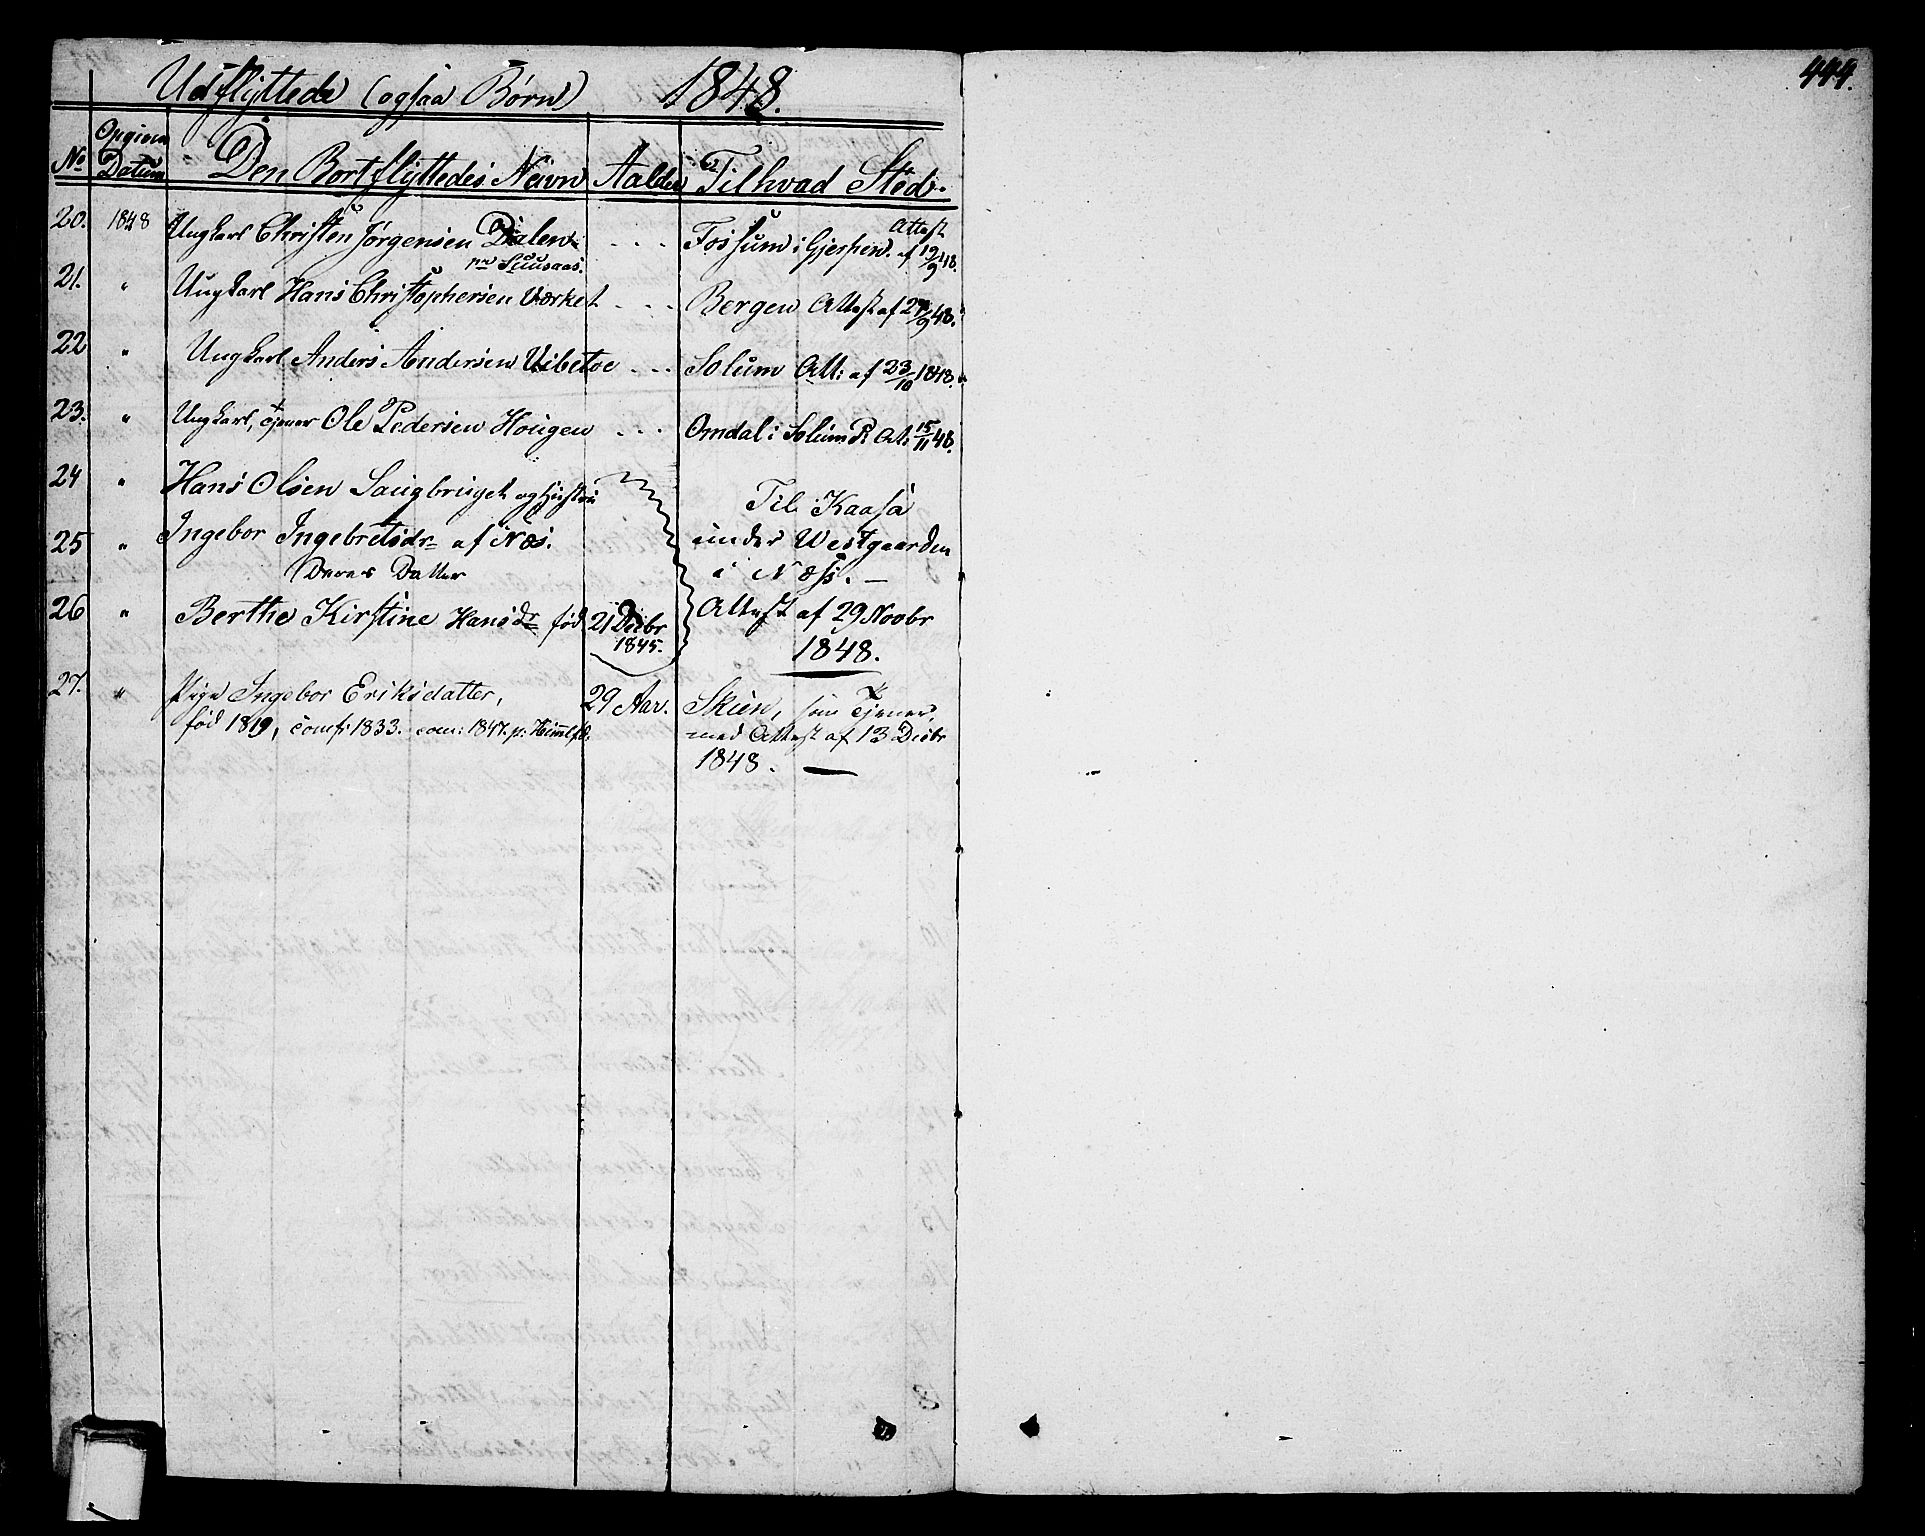 444.
Udflyttede (ogsaa Børn) 1848.
No Opgivne Datum Den Bortflyttedes Navn Aalder Tilhvad Sted.
20. 1848 Ungkarl Christen Jørgensen Dalen - - - Fossum i Gjerpen. Attest af 19/9 48.
21. " Ungkarl Hans Christophersen Værket - - - Bergen Attest af 27/9 48.
22 " Ungkarl Anders Andersen Vibetoe - - - Solum Att: af 23/10 1848.
23. " Ungkarl, tjener Ole Pedersen Hougen - - - Omdal i Solum P. At: 15/11 48.
24 " Hans Olsen Saugbruget og Hustru
Til Kaasa
25 " Ingebor Ingebretsdr af Næs. under Westgaarden
Deres Datter i Næss. —
26 " Berthe Kirstine Hansdr fød 21 Decbr 1845. Attest af 29 Novbr
1848.
27. " Pige Ingebor Eriksdatter, 29 Aar. Skien, som Tjener,
fød 1819, comf: 1833. com: 1847. med Attest af 13 Decbr
1848. —